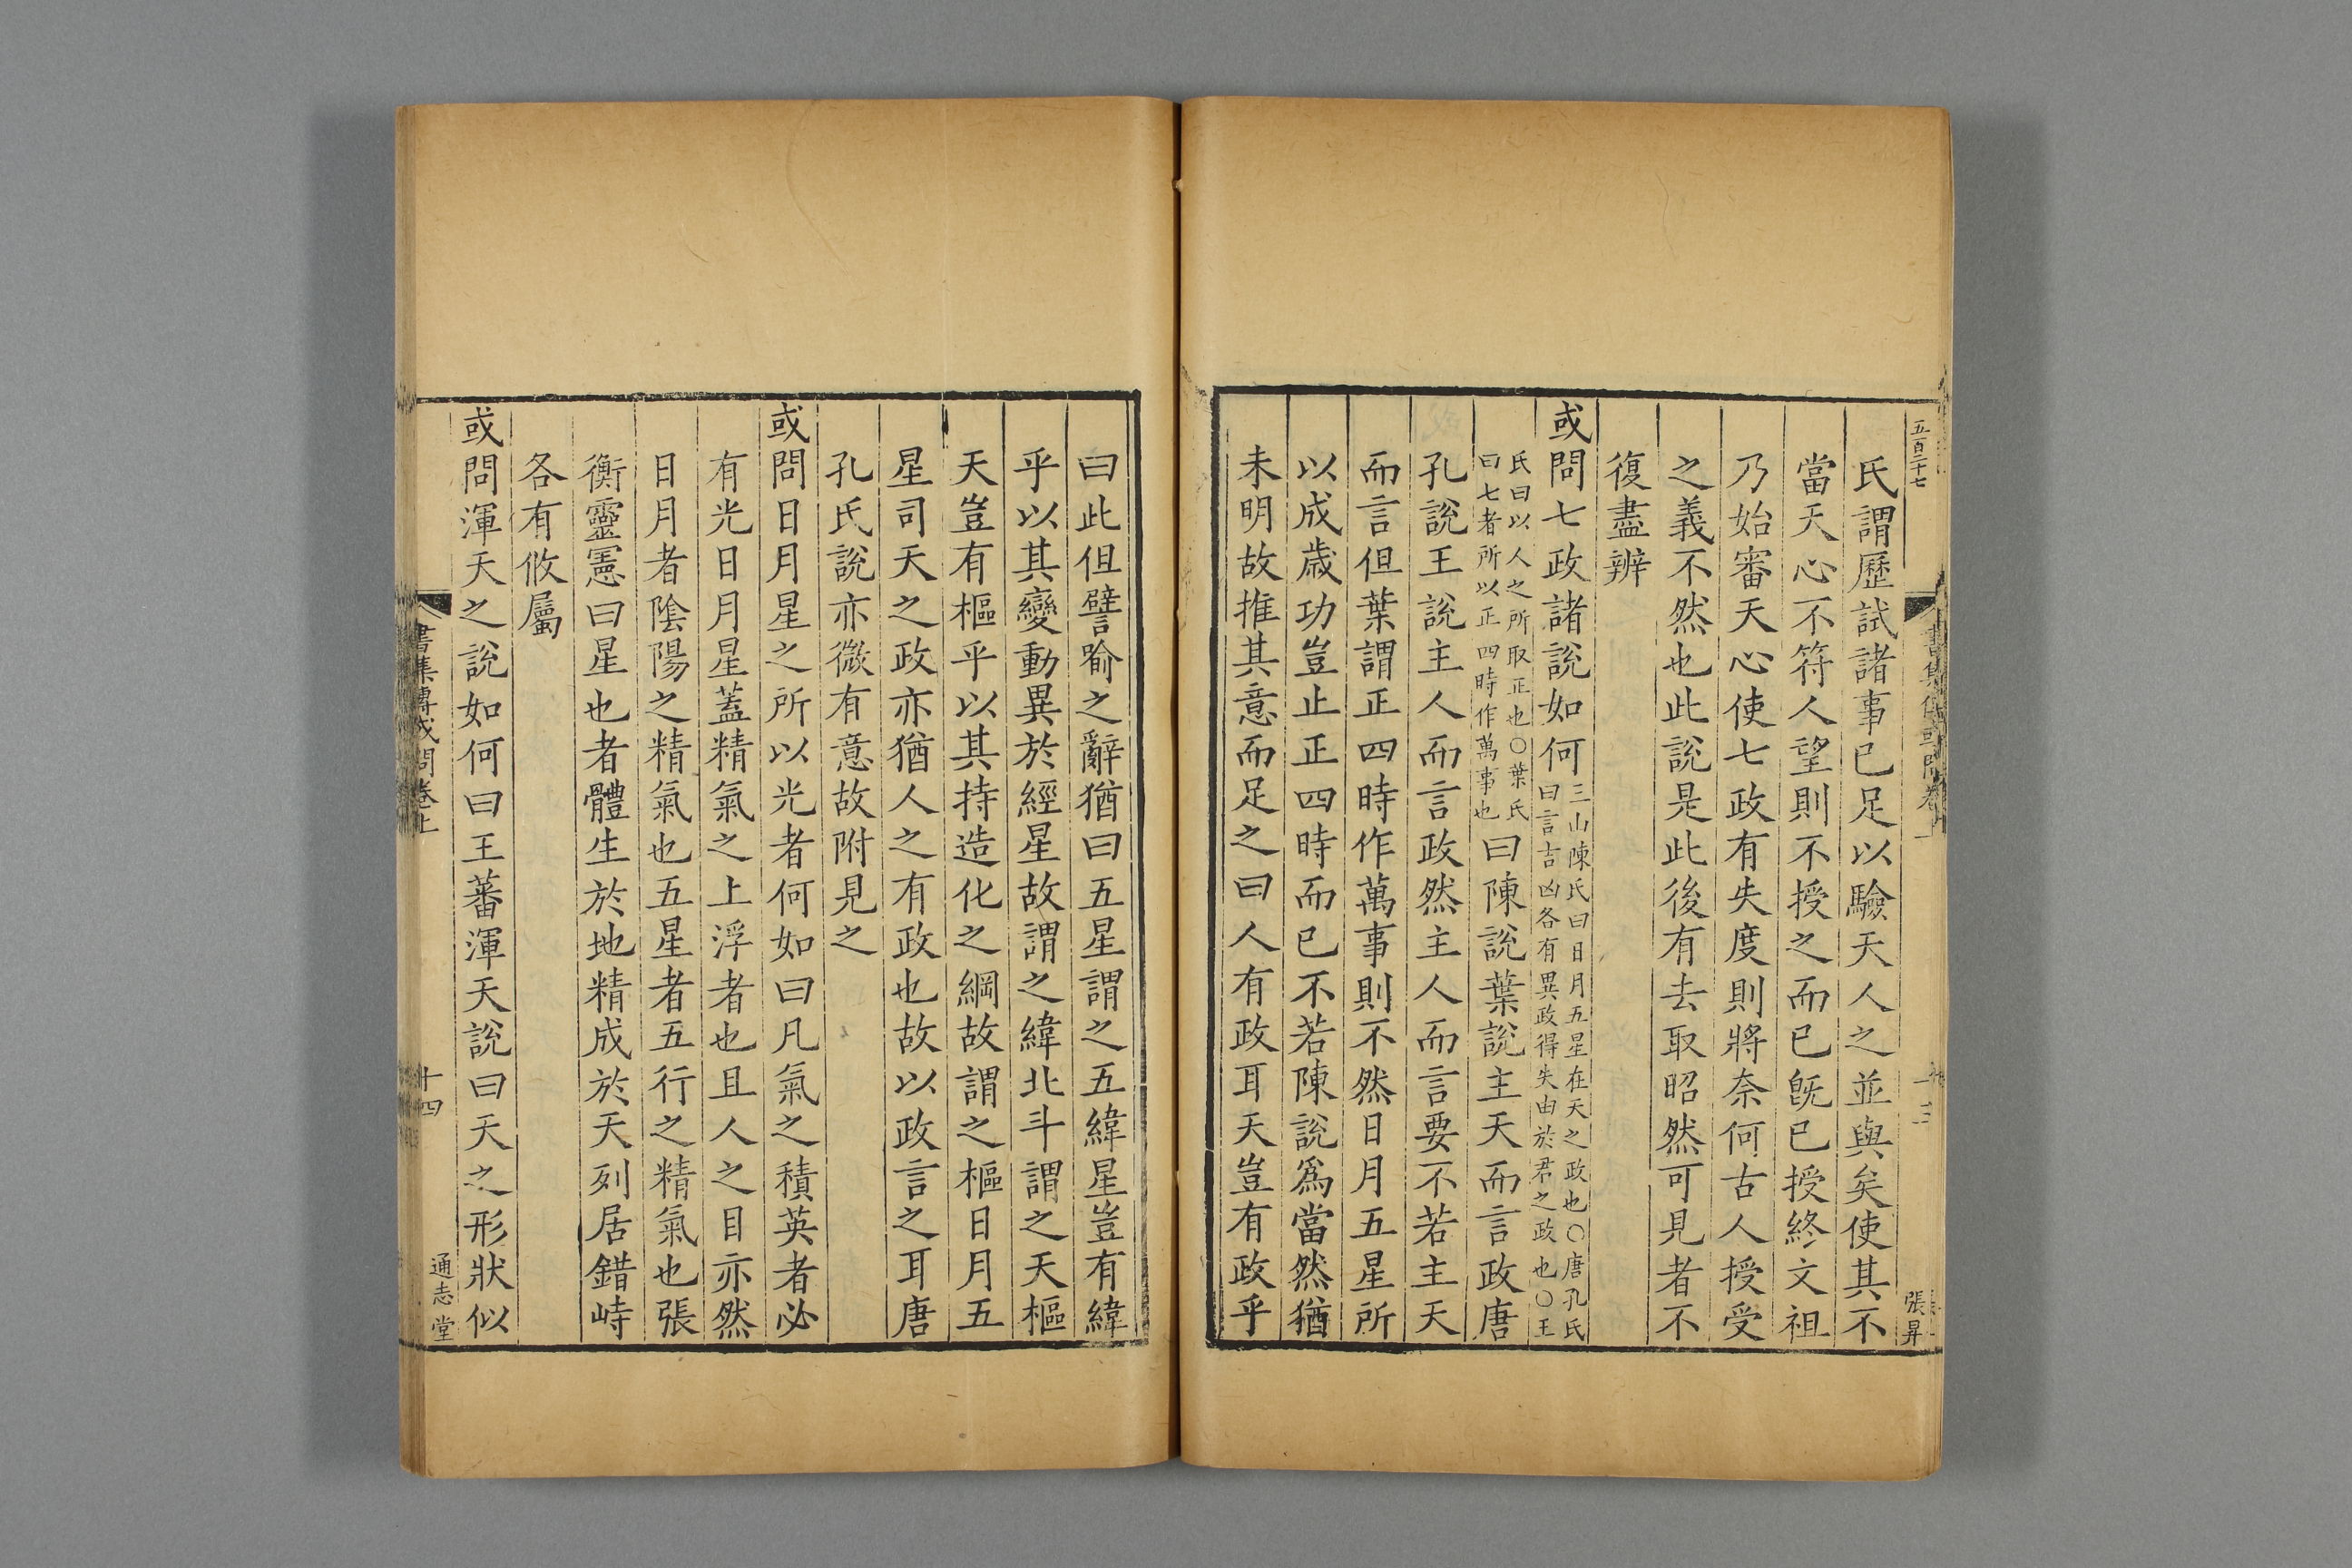 五百二十七
書集傳或問卷上
張昇
氏謂歷試諸事已足以驗天人之並與矣使其不
當天心不符人望則不授之而已旣已授終文祖
乃始審天心使七政有失度則將奈何古人授受
之義不然也此說是此後有去取昭然可見者不
復盡辨
或問七政諸說如何三山陳氏曰日月五星在天之政也○唐孔氏
曰言吉凶各有異政得失由於君之政也○王
氏曰以人之所取正也○葉氏
曰七者所以正四時作萬事也曰陳說葉說主天而言政唐
孔說王說主人而言政然主人而言要不若主天
而言但葉謂正四時作萬事則不然日月五星所
以成歲功豈止正四時而已不若陳說爲當然猶
未明故推其意而足之曰人有政耳天豈有政乎
曰此但譬喻之辭猶曰五星謂之五緯星豈有緯
乎以其變動異於經星故謂之緯北斗謂之天樞
天豈有樞乎以其持造化之綱故謂之樞日月五
星司天之政亦猶人之有政也故以政言之耳唐
孔氏說亦微有意故附見之
或問日月星之所以光者何如曰凡氣之積英者必
有光日月星蓋精氣之上浮者也且人之目亦然
日月者陰陽之精氣也五星者五行之精氣也張
衡靈憲曰星也者體生於地精成於天列居錯峙
各有攸屬
或問渾天之說如何曰王蕃渾天說曰天之形狀似
書集傳或問卷上
十四
通志堂